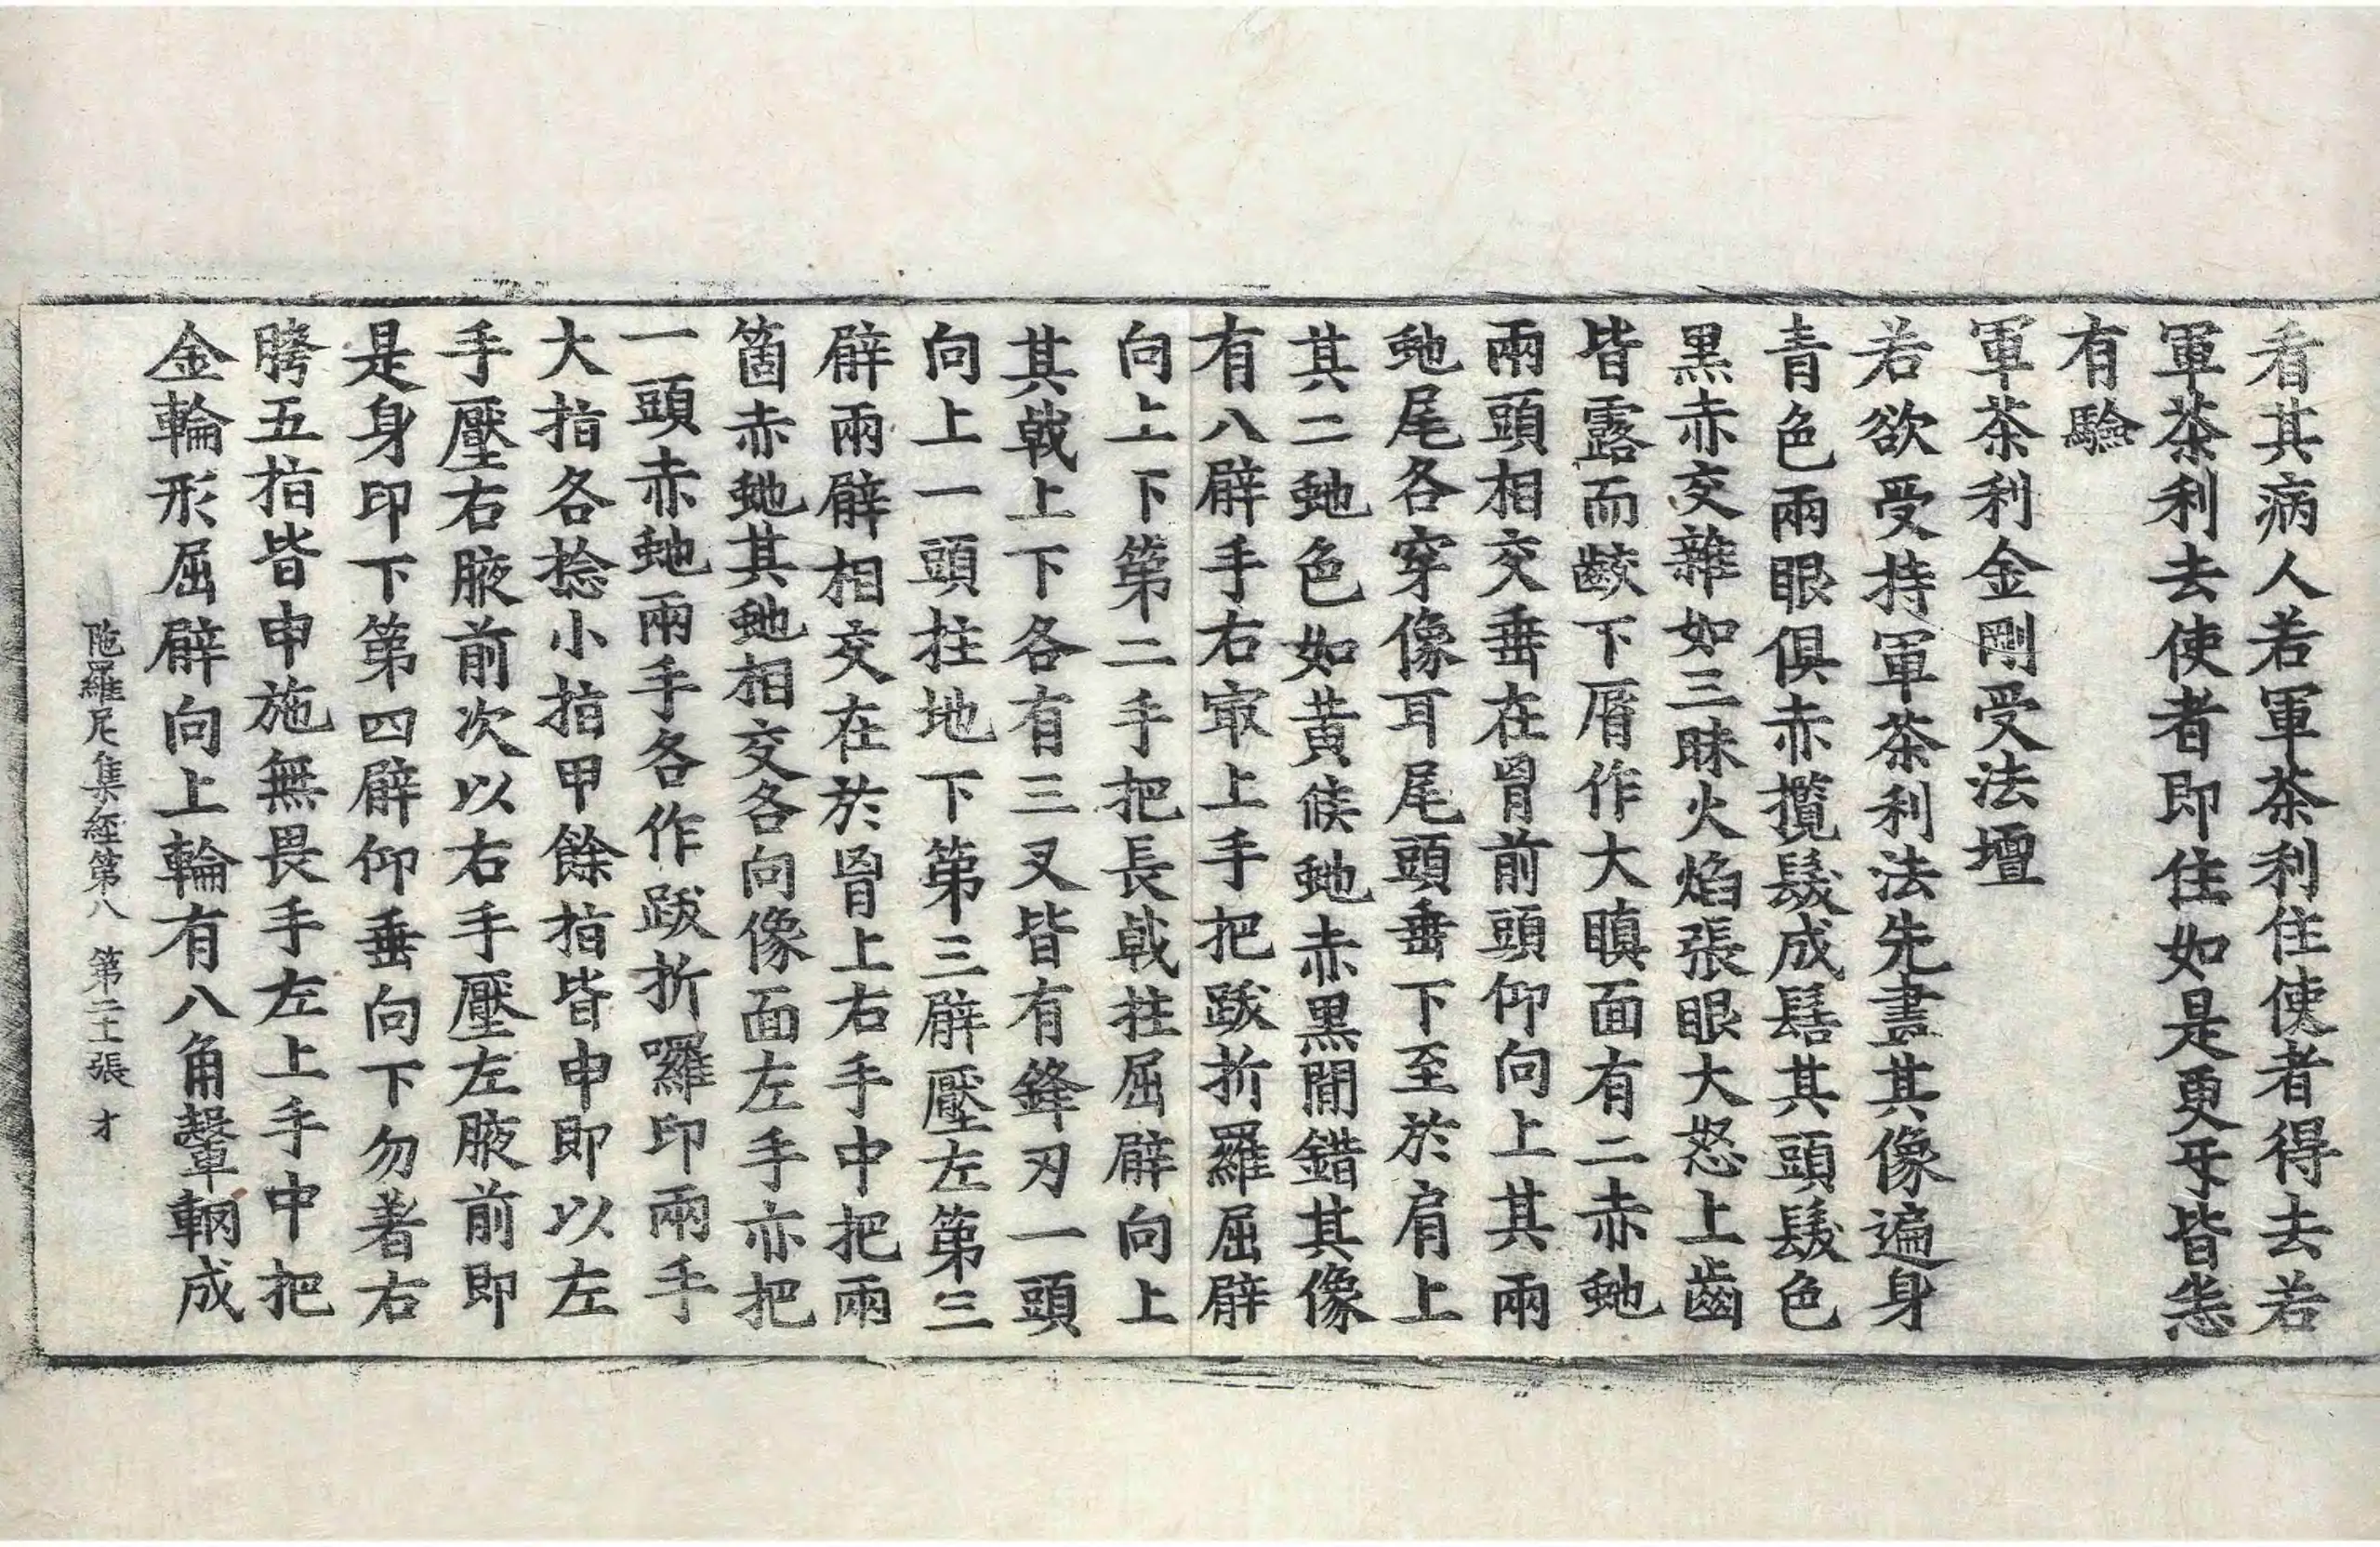 看其病人若軍荼利住使者得去若
軍荼利去使者即住如是更互皆悉
有驗
軍荼利金剛受法壇
若欲受持軍荼利法先畫其像遍身
青色兩眼俱赤攬髮成髻其頭髮色
黑赤交雜如三昧火焰張眼大怒上齒
皆露而齩下脣作大瞋面有二赤虵
兩頭相交垂在胷前頭仰向上其兩
虵尾各穿像耳尾頭垂下至於肩上
其二虵色如黃侯虵赤黑間錯其像
有八臂手右㝡上手把跋折羅屈臂
向上下第二手把長戟拄屈臂向上
其戟上下各有三叉皆有鋒刃一頭
向上一頭拄地下第三臂壓左第三
臂兩臂相交在於胷上右手中把兩
箇赤虵其虵相交各向像面左手亦把
一頭赤虵兩手各作跋折囉印兩手
大指各捻小指甲餘指皆申即以左
手壓右腋前次以右手壓左腋前即
是身印下第四臂仰垂向下勿著右
胯五指皆申施無畏手左上手中把
金輪形屈臂向上輪有八角轂輞成
陁羅尼集經第八 第二十張 才